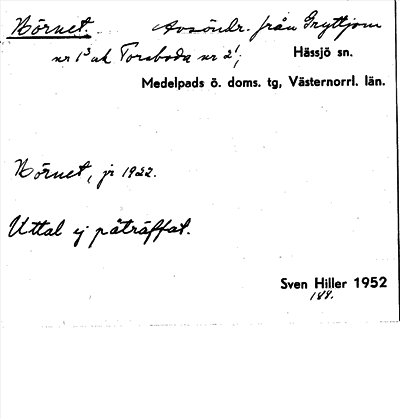 Nörnet. Avsöndr. från Gryttjom
nr 1³ och Torsboda nr 2¹; Hässjö sn.
Medelpads ö. doms. tg, Västernorrl. län.
Nörnet, jr 1922.
Uttal ej påträffat.
Sven Hiller 1952
188.